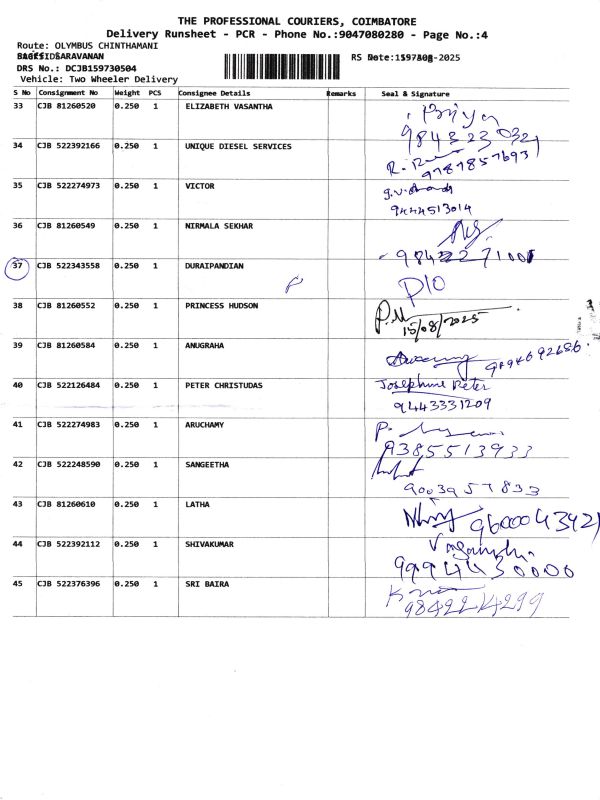 THE PROFESSIONAL COURIERS, COIMBATORE
Delivery Runsheet - PCR - Phone No.:9047080280 - Page No.:4
Route: OLYMBUS CHINTHAMANI
SARAVANAN
DRS No.: DCJB159730504
Vehicle: Two Wheeler Delivery
S No Consignment No Weight PCS Consignee Details Remarks Seal & Signature
33 CJB 81260520 0.250 1 ELIZABETH VASANTHA Priya
34 CJB 522392166 0.250 1 UNIQUE DIESEL SERVICES
9787857693
35 CJB 522274973 0.250 1 VICTOR
9444513014
36 CJB 81260549 0.250 1 NIRMALA SEKHAR
37 CJB 522343558 0.250 1 DURAIPANDIAN P/O
38 CJB 81260552 0.250 1 PRINCESS HUDSON
15/08/2025
39 CJB 81260584 0.250 1 ANUGRAHA
40 CJB 522126484 0.250 1 PETER CHRISTUDAS Josephine Peter
9443331209
41 CJB 522274983 0.250 1 ARUCHAMY
9385513933
42 CJB 522248590 0.250 1 SANGEETHA
9003957833
43 CJB 81260610 0.250 1 LATHA 9600043421
44 CJB 522392112 0.250 1 SHIVAKUMAR
9994430000
45 CJB 522376396 0.250 1 SRI BAIRA
9842274299